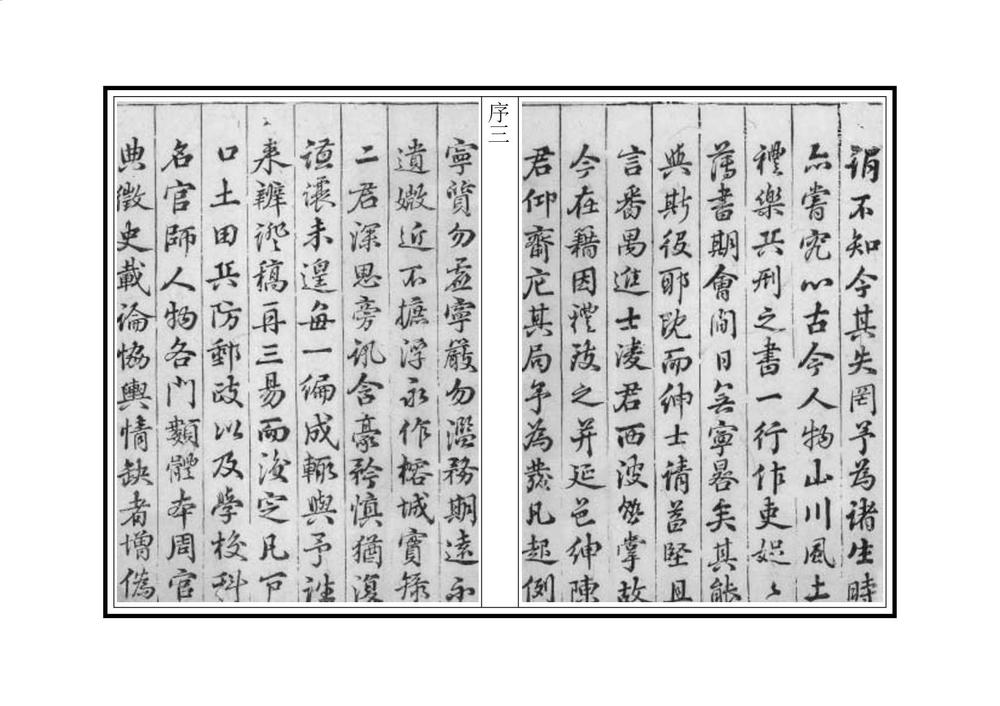 謂不知今其失罔予為諸生時
亦嘗究心古今人物山川風土
禮樂兵刑之書一行作吏
舊書期會間日無寧晷矣其能
與斯役耶既而紳士請益堅且
言番禺進士凌君西波能掌故
今在籍因禮致之并延邑紳陳
君仰齋庀其局予為發凡起例
序三
寧質勿虛寧嚴勿濫務期遠不
遺媺近不摭浮永作榕城實錄
二君深思旁訊含豪矜慎猶復
謙讓未遑每一編成輒與予
來辨證稿再三易而後定凡
口土田兵防郵政以及學校科
名官師人物各門類體本周官
典徵史載論協輿情缺者增偽